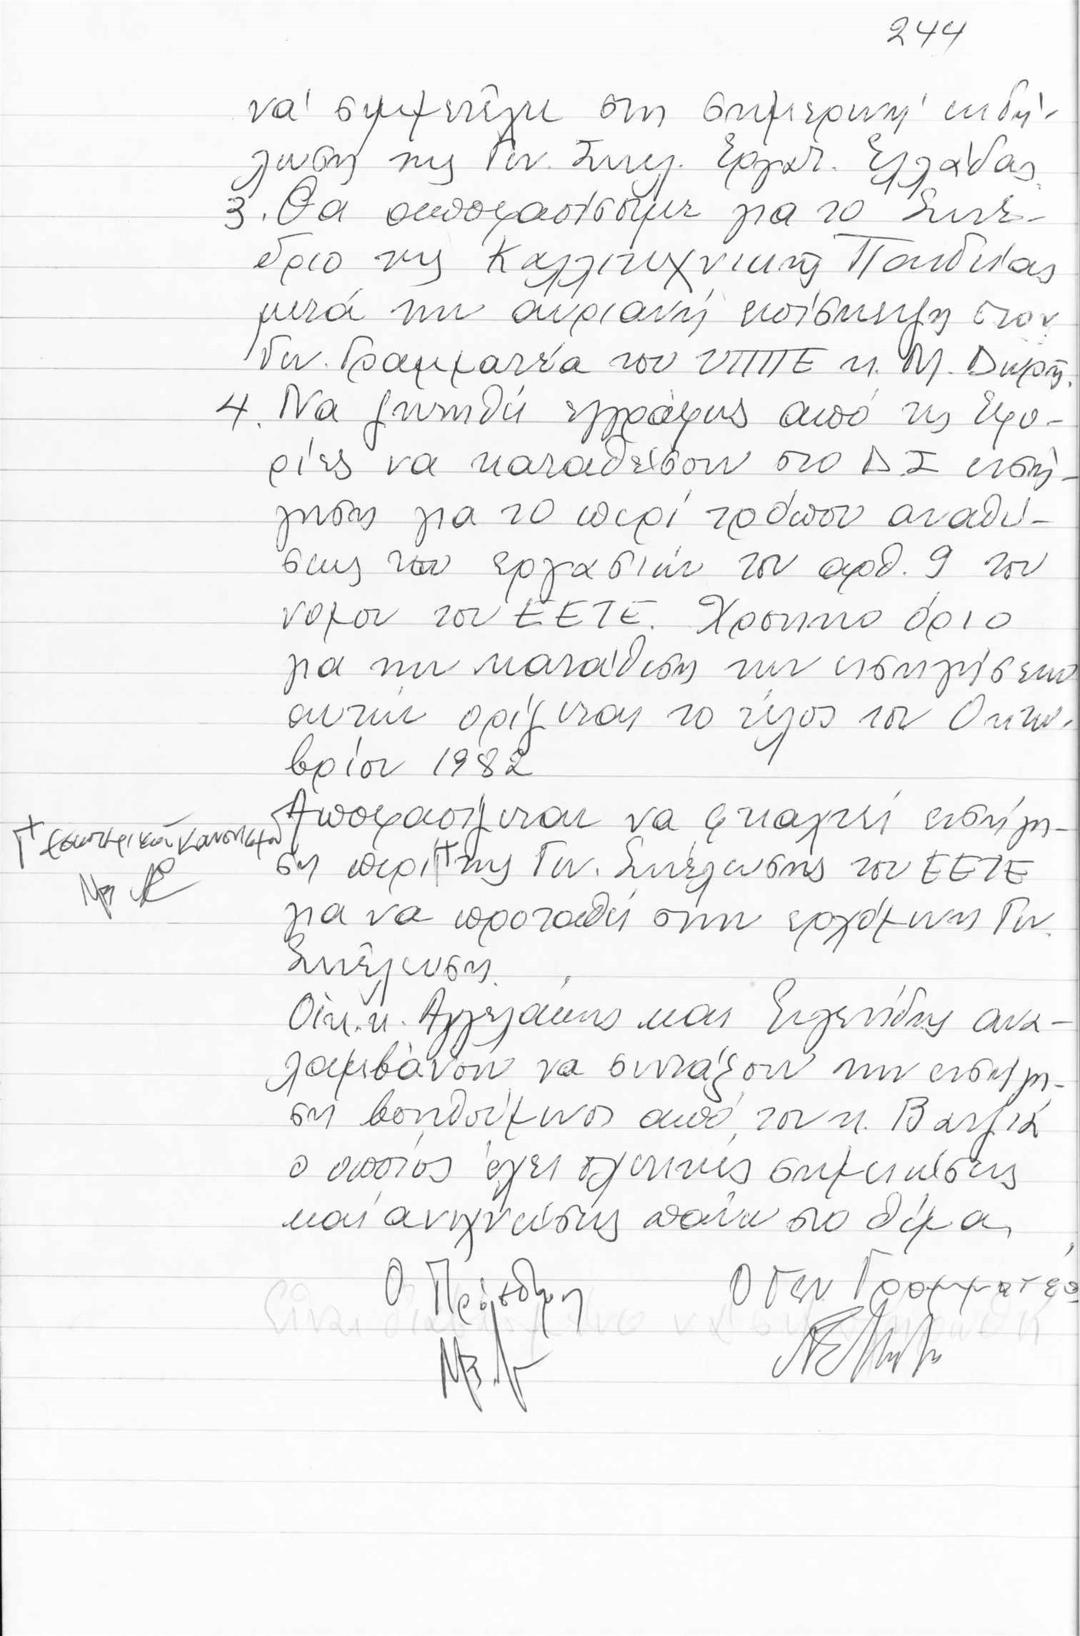 244
νά συμμετέχει στη σημερινή εκδή-
λωση της Γεν. Συνελ. Εργατ. Ελλάδας
3. Θα αποφασίσουμε για το Συνέ-
δριο της Καλλιτεχνικής Παιδείας
μετά την αυριανή επίσκεψη στον
Γεν. Γραμματέα του ΥΠΠΕ κ. Μ.
4. Να ζητηθεί εγγράφως από τις Εφο-
ρίες να καταθέσουν στο ΔΣ εισή-
γηση για το περί τρόπου αναθέ-
σεως των εργασιών του αρθ. 9 του
νόμου του ΕΕΤΕ. Χρονικό όριο
για την κατάθεση των εισηγήσεων
αυτών ορίζεται το τέλος του Οκτω-
βρίου 1982
Αποφασίζεται να εισήγη-
Γ+ εσωτερικού κανονισμού
ση περί Γ+ της Γεν. Συνέλευσης του ΕΕΤΕ
για να προταθεί στην ερχόμενη Γεν.
Συνέλευση.
Οι κ.κ. Αγγελάκης και Ευγενίδης ανα-
λαμβάνουν να συντάξουν την εισήγη-
ση βοηθούμενοι από τον κ. Βατζιά
ο οποίος έχει σχετικές σημειώσεις
και ανιχνεύσεις πάνω στο θέμα.
Ο Πρόεδρος Ο Γεν Γραμματέας